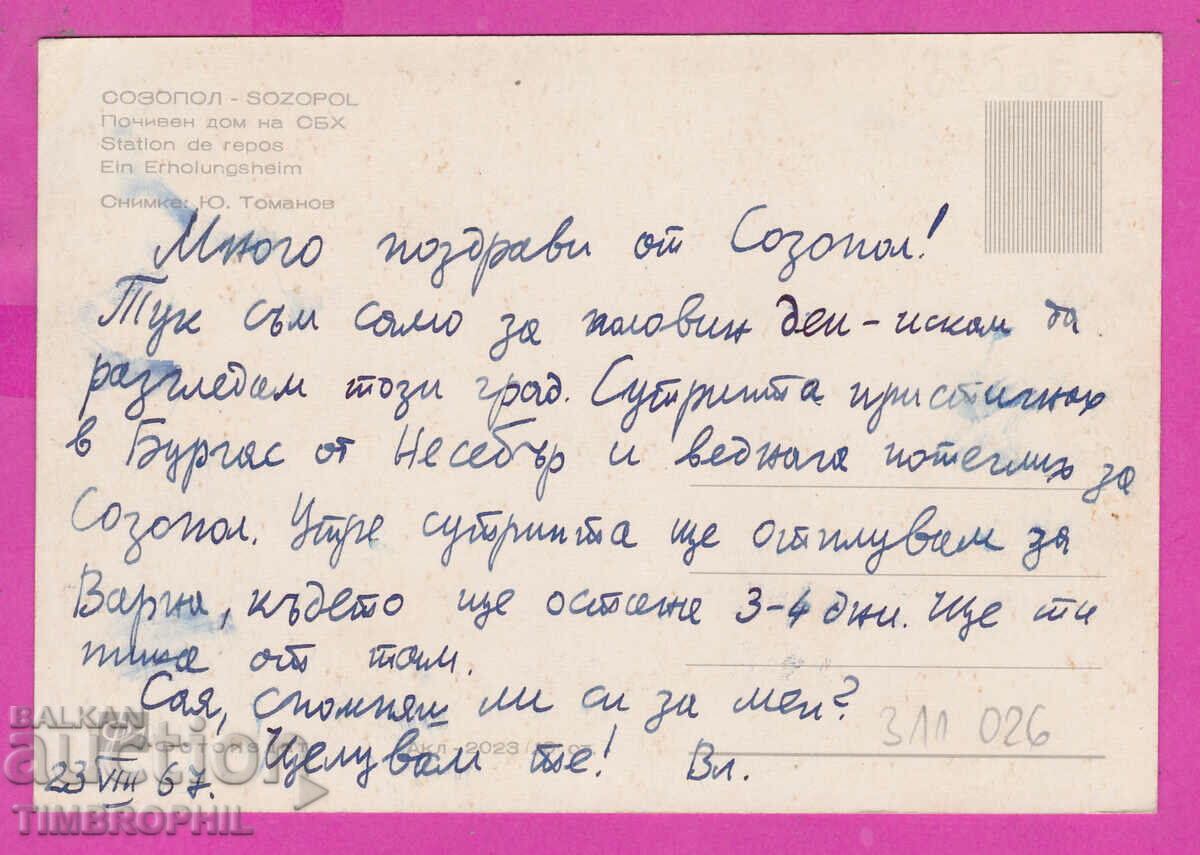 СОЗОПОЛ - SOZOPOL
Почивен дом на СБХ
Station de repos
Ein Erholungsheim
Снимка: Ю. Томанов
Много поздрави от Созопол!
Тук съм само за половин ден - искам да
разгледам този град. Сутринта пристигнах
в Бургас от Несебър и веднага потеглих за
Созопол. Утре сутринта ще отплувам за
Варна, където ще остана 3-4 дни. Ще ти
пиша от там.
Сая, спомняш ли си за мен?
Целувам те! Вл.
23 VIII 67.
311 026
Фотоиздат Акл. 2023
BALKAN
auction
TIMBROPHIL